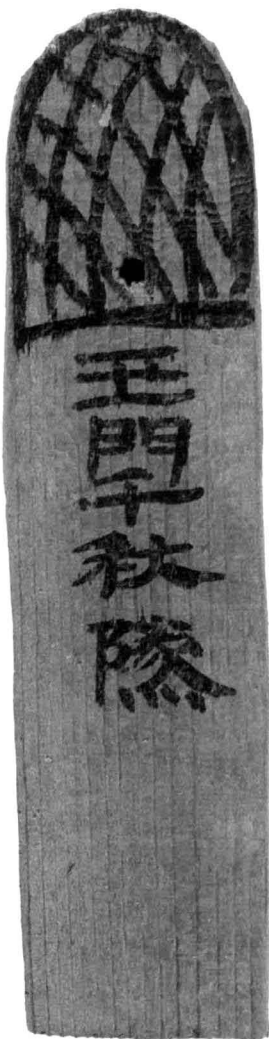 玉門千秋隊